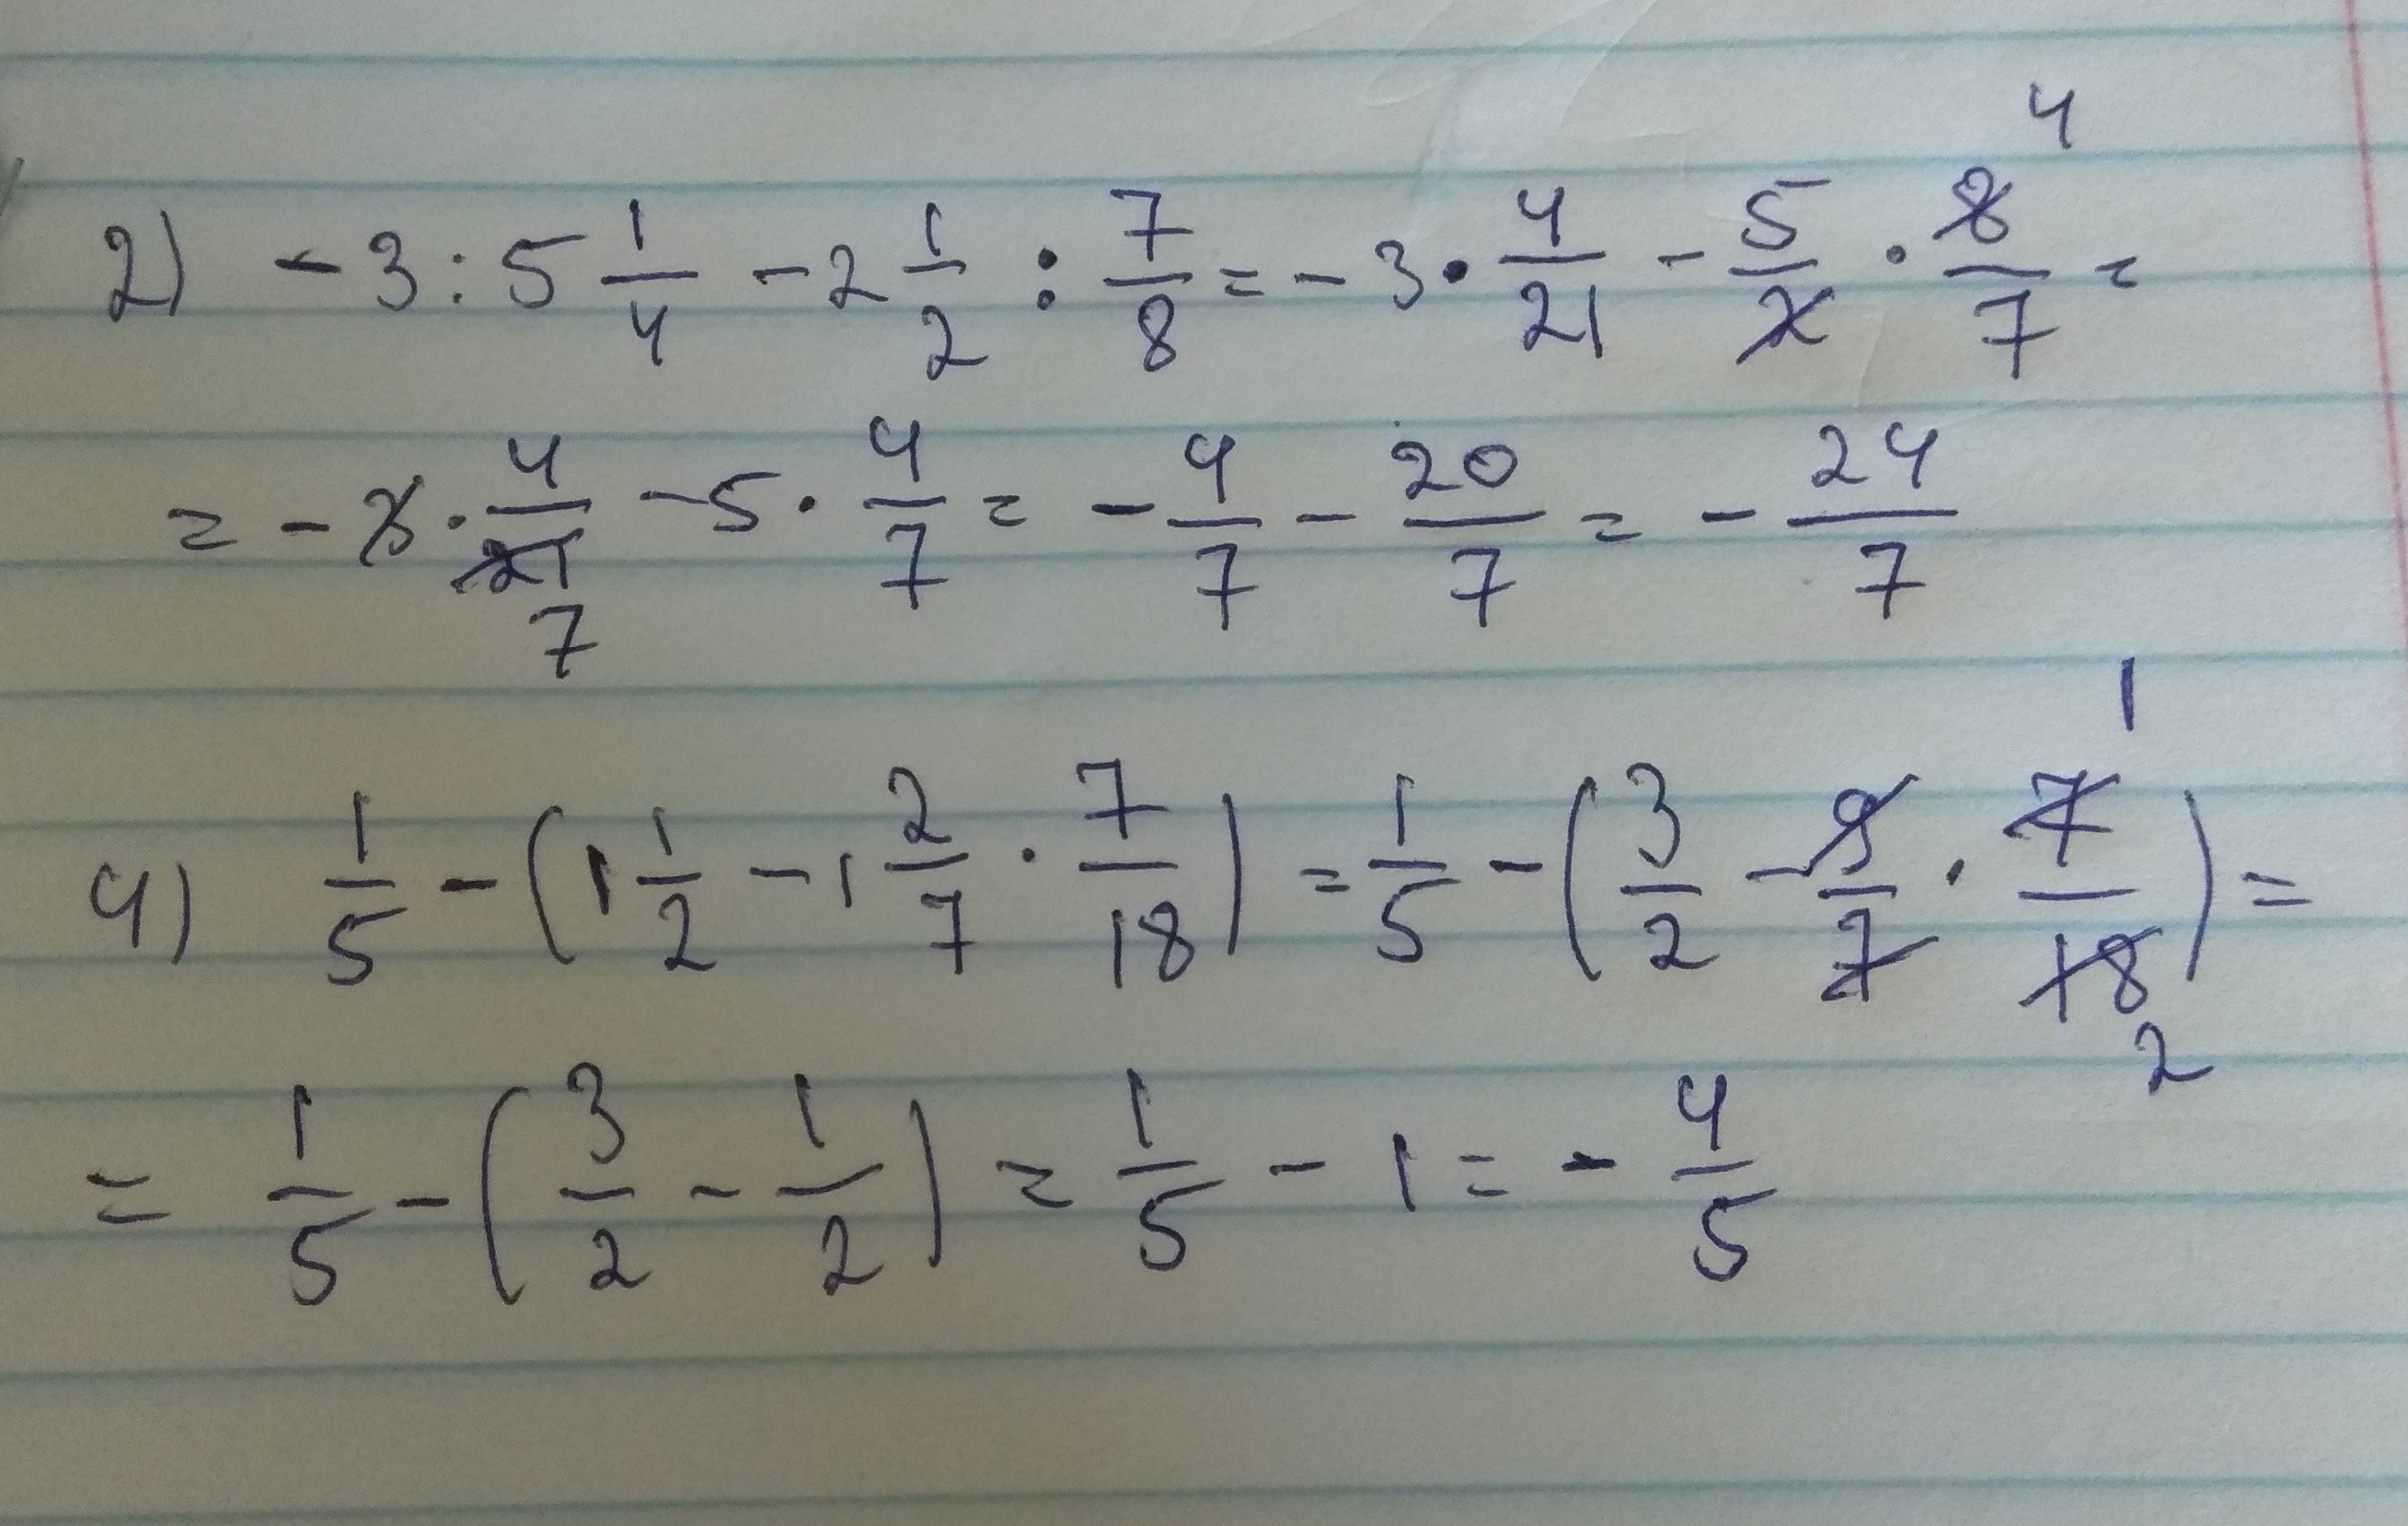 2) -3 : 5 1/4 - 2 1/2 : 7/8 = -3 · 4/21 - 5/2 · 8/7 4 =
= -3 · 4/21 7 - 5 · 4/7 = - 4/7 - 20/7 = - 24/7
4) 1/5 - (1 1/2 - 1 2/7 · 7/18) = 1/5 - (3/2 - 9/7 · 7/18 1 2) =
= 1/5 - (3/2 - 1/2) = 1/5 - 1 = - 4/5